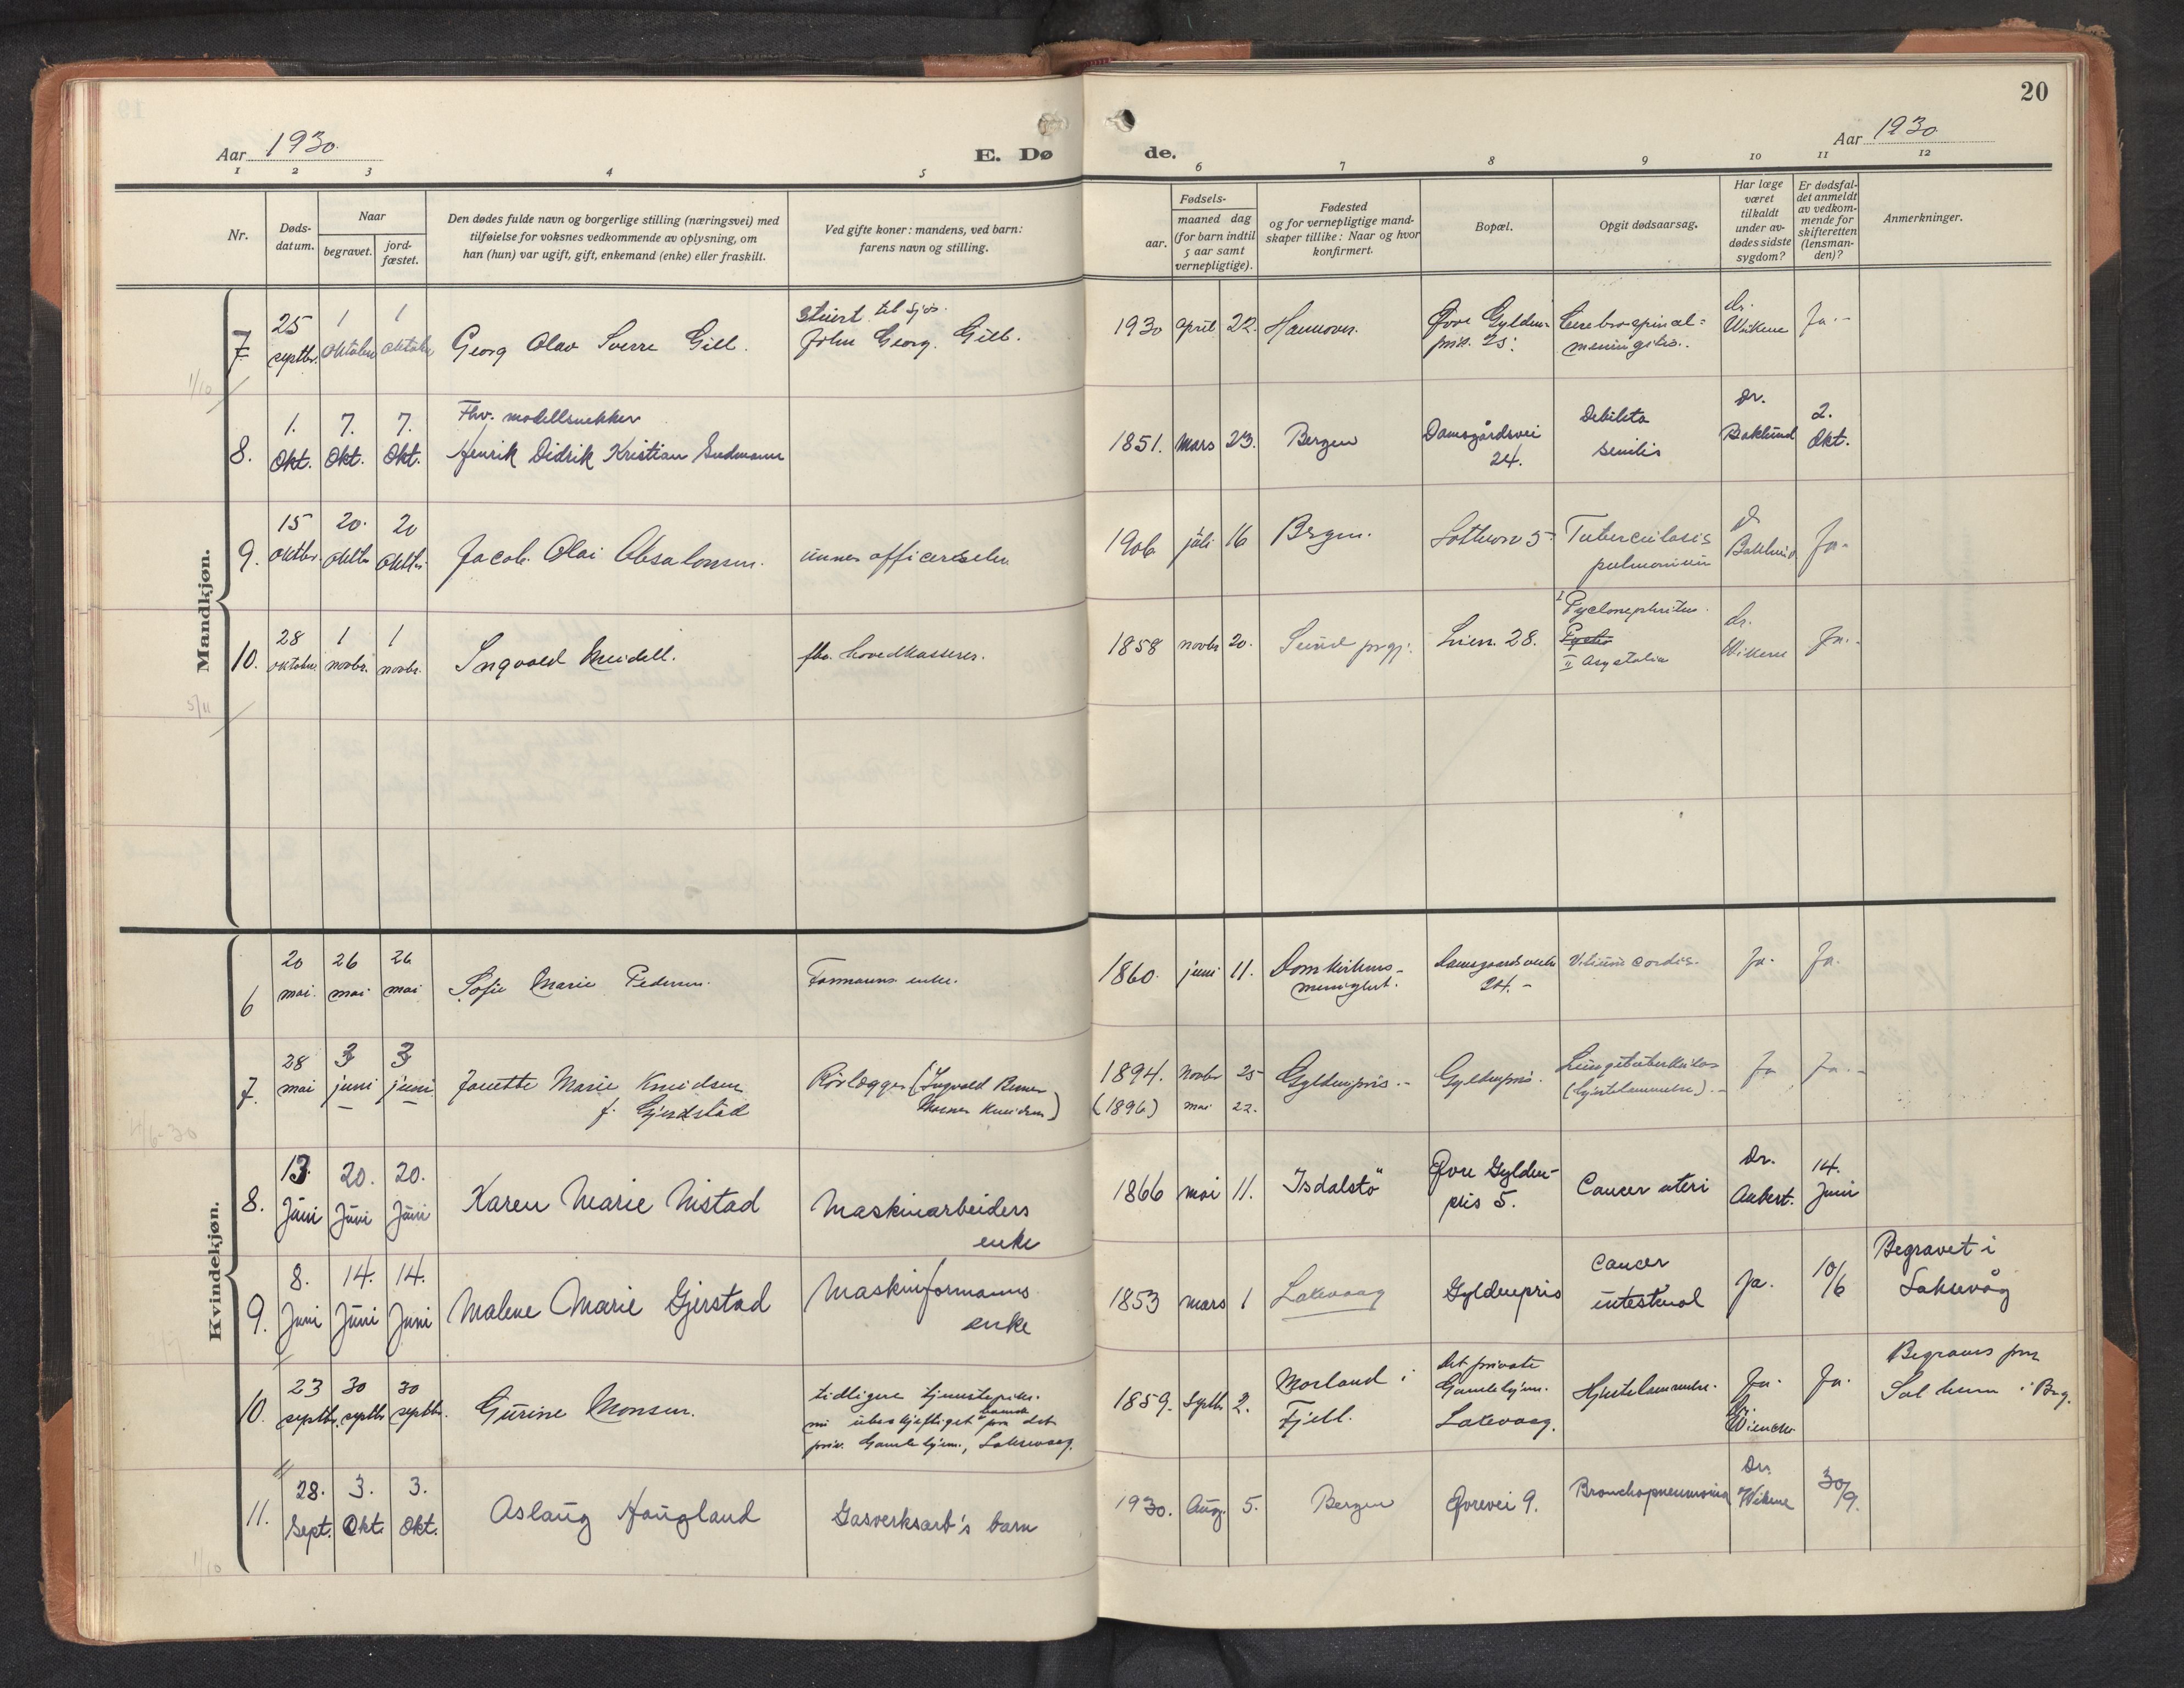 20
Aar 1930.
E. Dø
de.
Aar 1930
1 2 3 4 5 6 7 8 9 10 11 12
Nr.
Døds-
datum.
Naar
begravet.
jord-
fæstet.
Den dødes fulde navn og borgerlige stilling (næringsvei) med
tilføielse for voksnes vedkommende av oplysning, om
han (hun) var ugift, gift, enkemand (enke) eller fraskilt.
Ved gifte koner: mandens, ved barn:
farens navn og stilling.
Fødsels-
aar.
maaned dag
(for barn indtil
5 aar samt
vernepligtige).
Fødested
og for vernepligtige mand-
skaper tillike: Naar og hvor
konfirmert.
Bopæl.
Opgit dødsaarsag.
Har læge
været
tilkaldt
under av-
dødes sidste
sygdom?
Er dødsfal-
det anmeldt
av vedkom-
mende for
skifteretten
(lensman-
den)?
Anmerkninger.
Mandkjøn.
7
25 septbr.
1 oktober
1 oktober
Georg Olav Sverre Gill.
Stuert til sjøs.
John Georg. Gill.
1930 april 22. Hannover.
Øvre Gylden-
pris. 25.
Cerebrospinal-
meningitis.
Dr.
Wikene
Ja.-
1/10
8.
1. Okt.
7. Okt.
7. Okt.
Fhv. modellsnekker
Henrik Didrik Kristian Sudmann
1851. Mars 23. Bergen
Damsgårdsvei
24.
Debilitas
senilis
Dr.
Baklund
2.
Okt.
9.
15 oktbr.
20. oktbr
20 oktbr
Jacob. Olai Absalonsen.
underofficerselev
1906 juli 16 Bergen.
5
Tuberculosis
pulmonum
Dr
Baklund
Ja.
10.
28 oktober
1 novbr.
1 novbr.
Ingvald Meidell.
fhv. hovedkasserer.
1858 novbr 20. Sund prgj.
Lien. 28.
I Pyelonephritis.
II Asystolia
Dr.
Wikene
Ja.-
5/11
Kvindekjøn.
6
20 mai.
26 mai
26 mai
Sofie Marie Pedersen.
Formanns enke.
1860. juni 11. Domkirkens-
menighet.
Damsgaardsveien
24.-
Vitium cordis.
Ja.
Ja.
7.
28 mai
3 juni
3 juni
Janette Marie Knudsen
f. Gjerdstad
Rørlægger (Ingvald
Knudsen)
1894. Novbr 25
(1896) mai 22.
Gyldenpris.-
Gyldenpris.
Lungetuberkulos
(hjertelammelse).-
Ja
Ja.-
4/6-30
8.
13. Juni
20. Juni
20. Juni
Karen Marie Nistad
Maskinarbeiders
enke
1866 mai 11. Isdalstö
Øvre Gylden-
pris 5.
Cancer uteri
Dr.
Aubert.
14.
Juni
9.
8. Juni
14. Juni
14. Juni
Malene Marie Gjerstad
Maskinformanns
enke
1853 mars 1 Laksevaag
Gyldenpris
Cancer
intestinal
Ja.
10/6
Begravet i
Laksevåg
10.
23 septbr.
30 septbr
30 septbr.
Gurine Monsen.
tidligere tjenestepike.
nu ubeskjeftiget boende paa det
priv. Gamlehjem., Laksevaag.
1859. Septbr 2.
Morland i
Fjell.
Det private
Gamlehjem.
Laksevaag.
Hjertelammelse.
Ja.
Dr.
Ja.
Begraves paa
Solheim i Brg.
11.
28. Sept.
3. Okt.
3. Okt.
Aslaug Haugland
Gasverksarb's barn
1930. Aug. 5. Bergen
Øvrevei 9.
Bronchopneumonia
Dr.
Wikene
30/9.
1/10